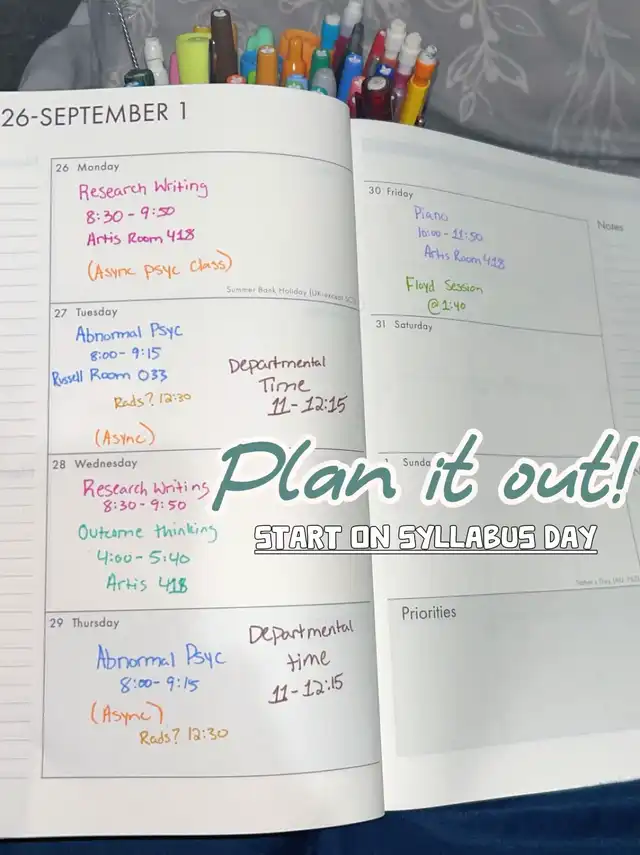 26-SEPTEMBER 1
26 Monday
Research Writing
8:30 - 9:50
Artis Room 418
(Async psyc class)
Summer Bank Holiday (UK-except SCT)
27 Tuesday
Abnormal Psyc
8:00 - 9:15
Russell Room 033
Rads? 12:30
(Async)
Departmental
Time
11 - 12:15
28 Wednesday
Research Writing
8:30 - 9:50
Outcome thinking
4:00 - 5:40
Artis 418
29 Thursday
Abnormal Psyc
8:00 - 9:15
(Async)
Rads? 12:30
Departmental
time
11 - 12:15
30 Friday
Piano
10:00 - 11:50
Artis Room 418
Floyd Session
@ 1:40
Notes
31 Saturday
Plan it out!
START ON SYLLABUS DAY
1 Sunda
Father's Day (AU, NZ)
Priorities